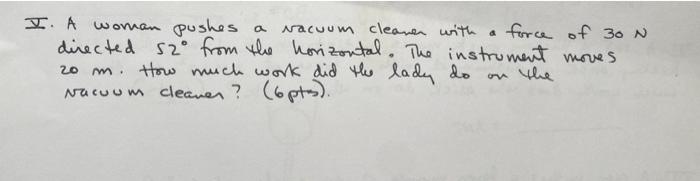 V. A woman pushes a vacuum cleaner with a force of 30 N
directed 52° from the horizontal. The instrument moves
20 m. How much work did the lady do on the
vacuum cleaner? (6pts).